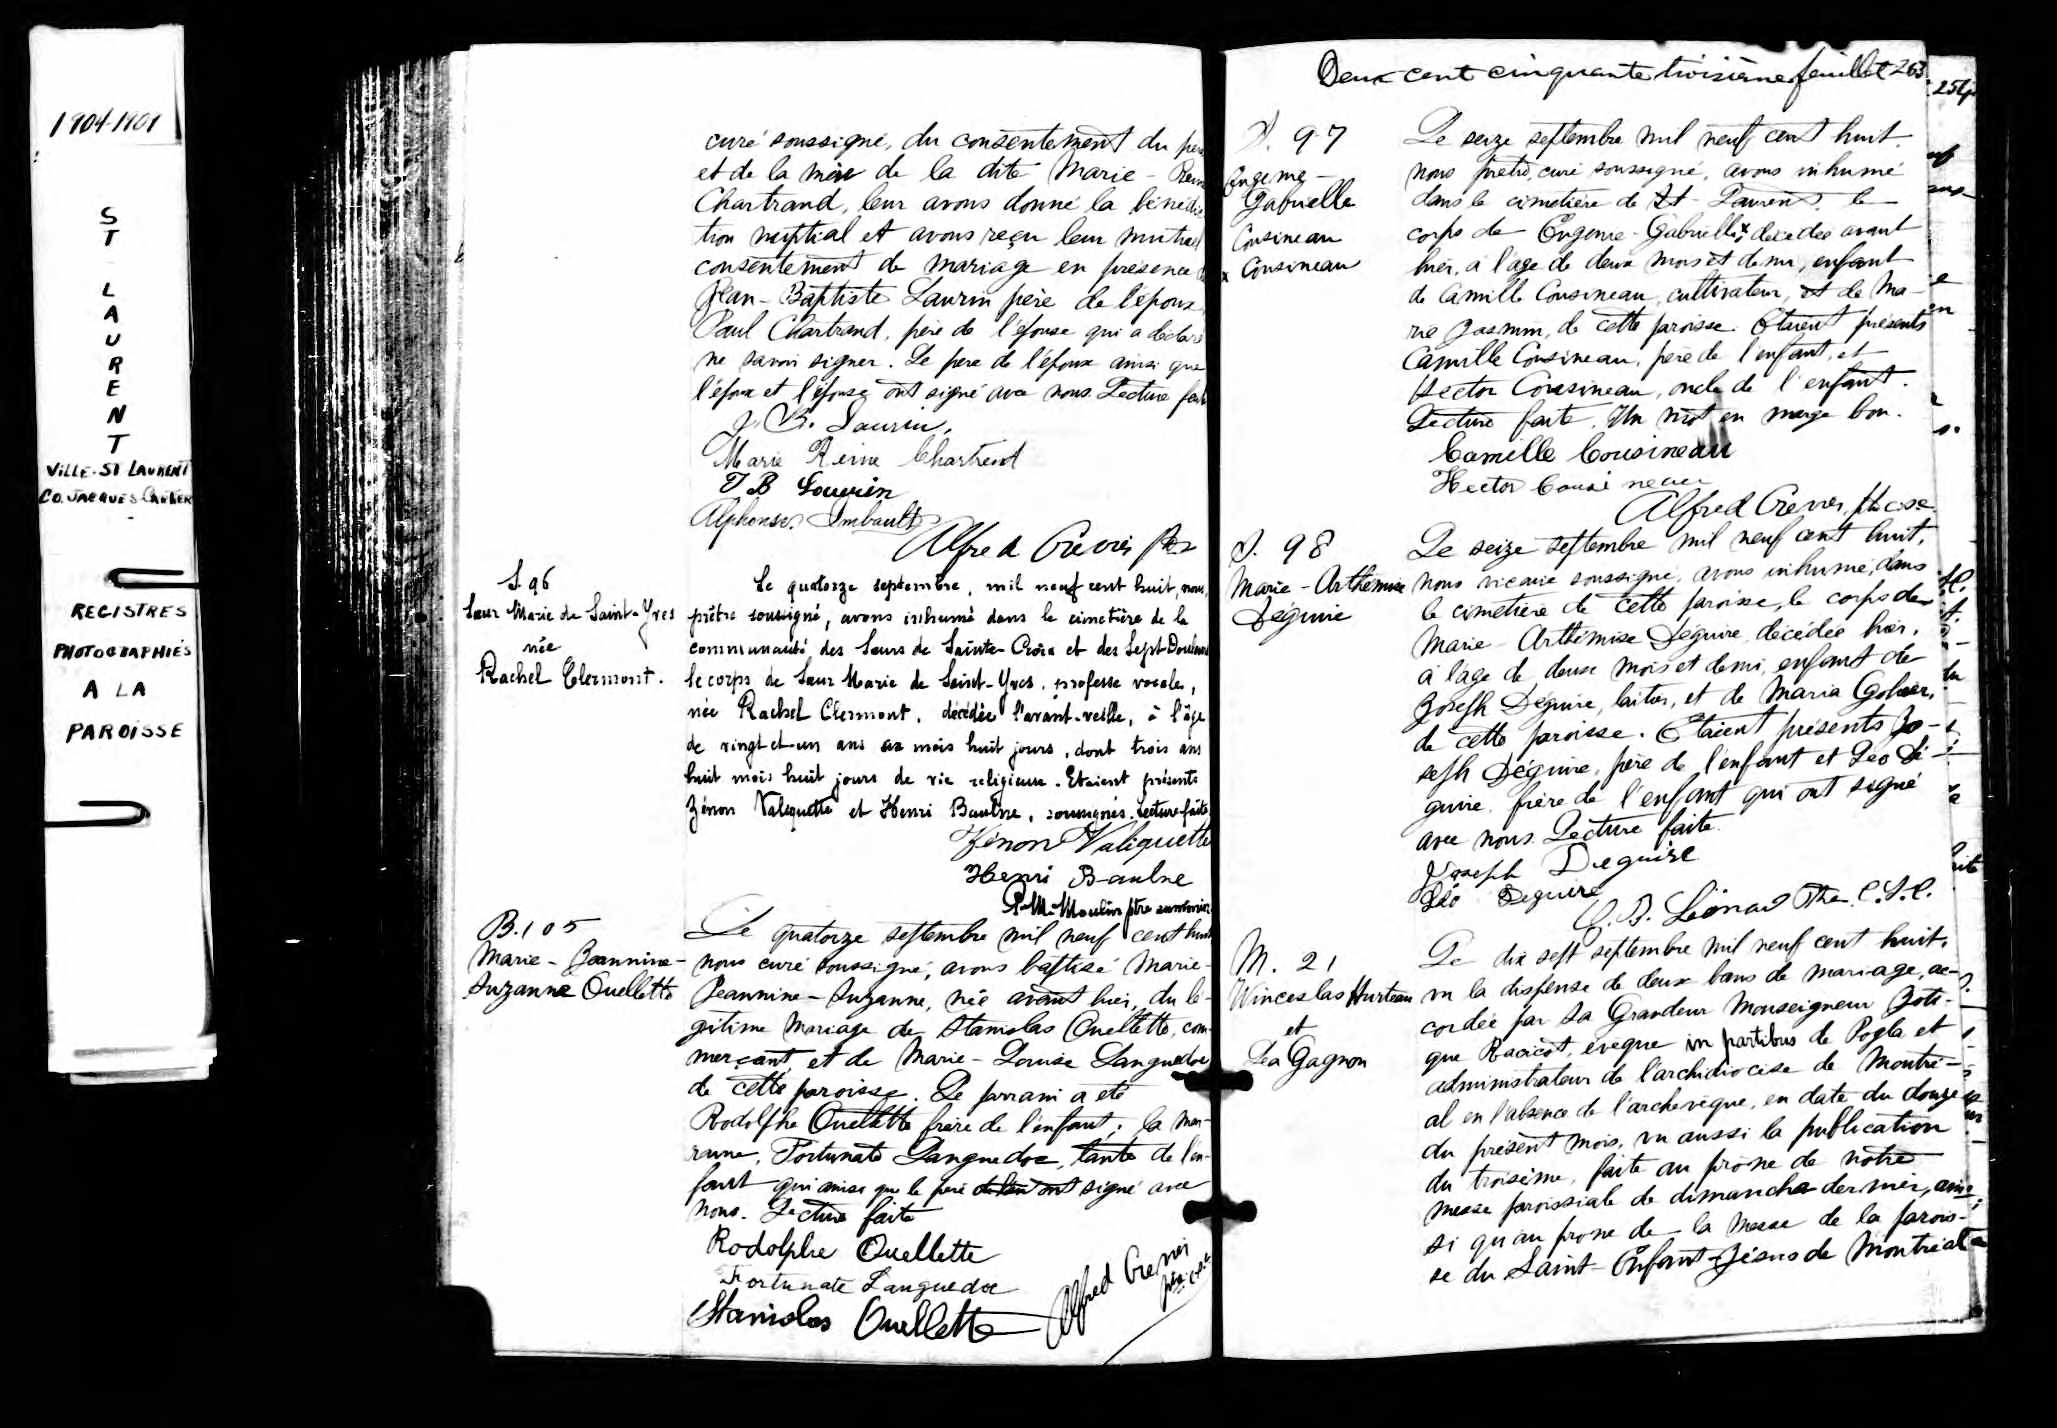 1904-1909
ST LAURENT
VILLE-ST LAURENT
CO. JACQUES CARTIER
REGISTRES
PHOTOGRAPHIÉS
A LA
PAROISSE
curé soussigné, du consentement du père
et de la mère de la dite Marie-Reine
Chartrand, leur avons donné la bénédic
tion nuptial et avons reçu leur mutuel
consentement de mariage en présence de
Jean-Baptiste Laurin père de l'époux
Paul Chartrand, père de l'épouse qui a déclaré
ne savoir signer. Le père de l'époux ainsi que
l'époux et l'épouse ont signé avec nous. Lecture faite
J. B. Laurin.
Marie Reine Chartrend
J B Laurin
Alphonse Imbault
Alfred Crevier Ptre
S. 96
Sœur Marie de Saint-Yves
née
Rachel Clermont.
Le quatorze septembre, mil neuf cent huit, nous,
prêtre soussigné, avons inhumé dans le cimetière de la
communauté des Sœurs de Sainte-Croix et des Sept-Douleurs
le corps de Sœur Marie de Saint-Yves, professe vocale,
née Rachel Clermont, décédée l'avant-veille, à l'âge
de vingt-et-un ans six mois huit jours, dont trois ans
huit mois huit jours de vie religieuse. Etaient présents
Zénon Valiquette et Henri Baulne, soussignés. Lecture faite.
Zénon Valiquette
Henri Baulne
P.M. Moulin ptre aumônier
B. 105
Marie-Jeannine-
Suzanne Ouellette
Le quatorze septembre mil neuf cent huit
nous curé soussigné, avons baptisé Marie-
Jeannine-Suzanne, née avant hier, du lé-
gitime mariage de Stanislas Ouellette, com-
merçant, et de Marie-Louise Languedoc
de cette paroisse. Le parrain a été
Rodolphe Ouellette frère de l'enfant; la mar-
raine, Fortunate Languedoc, tante de l'en-
fant qui ainsi que le père signé avec
nous. Lecture faite
Rodolphe Ouellette
Fortunate Languedoc
Stanislas Ouellette
Alfred Crevier
Deux cent cinquante troisième feuillet 253
254
S. 97
Eugenie-
Gabrielle
Cousineau
x Cousineau
Le seize septembre mil neuf cent huit.
nous prêtre, curé soussigné, avons inhumé
dans le cimetière de St-Laurent, le
corps de Eugenie-Gabrielle x, décédée avant
hier, à l'âge de deux mois et demi, enfant
de Camille Cousineau, cultivateur, et de Ma-
rie Jasmin, de cette paroisse. Etaient présents
Camille Cousineau, père de l'enfant, et
Hector Cousineau, oncle de l'enfant.
Lecture faite. Un mot en marge bon.
Camille Cousineau
Hector Cousineau
Alfred Crevier, ptre c.s.c.
S. 98
Marie-Arthémise
Déguire
Le seize septembre mil neuf cent huit,
nous vicaire soussigné, avons inhumé, dans
le cimetière de cette paroisse, le corps de
Marie-Arthémise Déguire, décédée hier,
à l'âge de deux mois et demi, enfant de
Joseph Déguire, laitier, et de Maria Gohier,
de cette paroisse. Etaient présents Jo-
seph Déguire, père de l'enfant et Léo Dé-
guire, frère de l'enfant qui ont signé
avec nous. Lecture faite.
Joseph Deguire
Léo Deguire
J. B. Léonard Ptre C.S.C.
M. 21
Winceslas Hurteau
et
Léa Gagnon
Le dix sept septembre mil neuf cent huit.
vu la dispense de deux bans de mariage, ac-
cordée par Sa Grandeur Monseigneur Zoti-
que Racicot, évêque in partibus de Pogla et
administrateur de l'archidiocèse de Montré-
al en l'absence de l'archevêque, en date du douze
du présent mois, vu aussi la publication
du troisième, faite au prône de notre
messe paroissiale de dimanche dernier, ain-
si qu'au prône de la messe de la parois-
se du Saint-Enfant-Jésus de Montréal